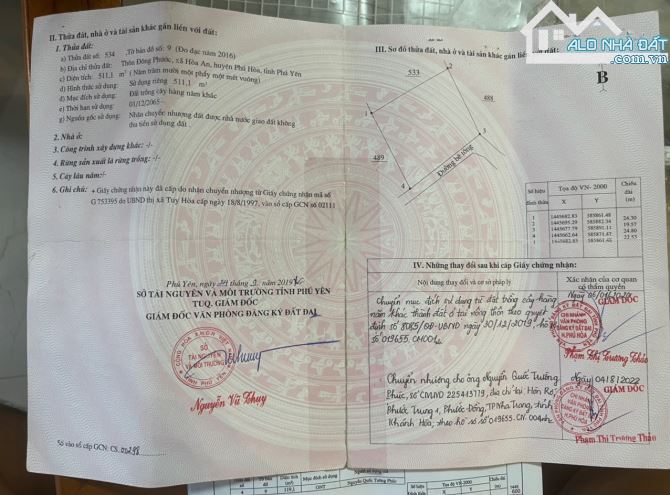 ALO NHÀ ĐẤT
.com.vn
II. Thửa đất, nhà ở và tài sản khác gắn liền với đất:
1. Thửa đất:
a) Thửa đất số: 534 ,Tờ bản đồ số: 9 (Đo đạc năm 2016)
b) Địa chỉ thửa đất: Thôn Đông Phước, xã Hòa An, huyện Phú Hòa, tỉnh Phú Yên
c) Diện tích: 511,1 m² (Năm trăm mười một phẩy một mét vuông)
d) Hình thức sử dụng: Sử dụng riêng 511,1 m²
đ) Mục đích sử dụng: Đất trồng cây hàng năm khác
e) Thời hạn sử dụng: 01/12/2065
g) Nguồn gốc sử dụng: Nhận chuyển nhượng đất được nhà nước giao đất không
thu tiền sử dụng đất
2. Nhà ở:
3. Công trình xây dựng khác: -/-
4. Rừng sản xuất là rừng trồng: -/-
5. Cây lâu năm:-/-
6. Ghi chú: + Giấy chứng nhận này đã cấp do nhận chuyển nhượng từ Giấy chứng nhận mã số
G 753395 do UBND thị xã Tuy Hòa cấp ngày 18/8/1997, vào sổ cấp GCN số 02111
Phú Yên, 2019
SỞ TÀI NGUYÊN VÀ MÔI TRƯỜNG TỈNH PHÚ YÊN
TUQ. GIÁM ĐỐC
GIÁM ĐỐC VĂN PHÒNG ĐĂNG KÝ ĐẤT ĐAI
SỞ
TÀI NGUYÊN
VÀ MÔI TRƯỜNG
TỈNH PHÚ YÊN
Nguyễn Vũ Thuy
Số vào sổ cấp GCN: CS.
III. Sơ đồ thửa đất, nhà ở và tài sản khác gắn liền với đất:
B
533
2
488
1
3
489
4
Đường bê tông
Số hiệu đỉnh thửa
Tọa độ VN- 2000
Chiều dài (m)
1 1445682.83 585861.48
24.30
19.57
24.80
22.53
IV. Những thay đổi sau khi cấp Giấy chứng nhận:
Nội dung thay đổi và cơ sở pháp lý
Xác nhận của cơ quan
có thẩm quyền
Chuyển mục đích sử dụng từ đất trồng cây hàng
năm khác thành đất ở tại nông thôn theo quyết
định số /QĐ-UBND ngày 30/12/2019, hồ sơ
số 019655.CN.004
GIÁM ĐỐC
CHI NHÁNH
VĂN PHÒNG
ĐĂNG KÝ ĐẤT ĐAI
H.PHÚ HÒA
Phạm Thị Trương Thảo
Chuyển nhượng cho ông Nguyễn Quốc Trường
Phúc, số CMND 225413719, địa chỉ tại, Hòn Rớ,
Phước Trung 1, Phước Đồng, TP Nha Trang, tỉnh
Khánh Hòa, theo hồ sơ số 019655.CN.004
Ngày 04/8/2022
GIÁM ĐỐC
CHI NHÁNH
VĂN PHÒNG
ĐĂNG KÝ ĐẤT ĐAI
H.PHÚ HÒA
Phạm Thị Trương Thảo
Mục đích sử dụng
ONT
Nguyễn Quốc Trường Phúc
Tọa độ VN-2000